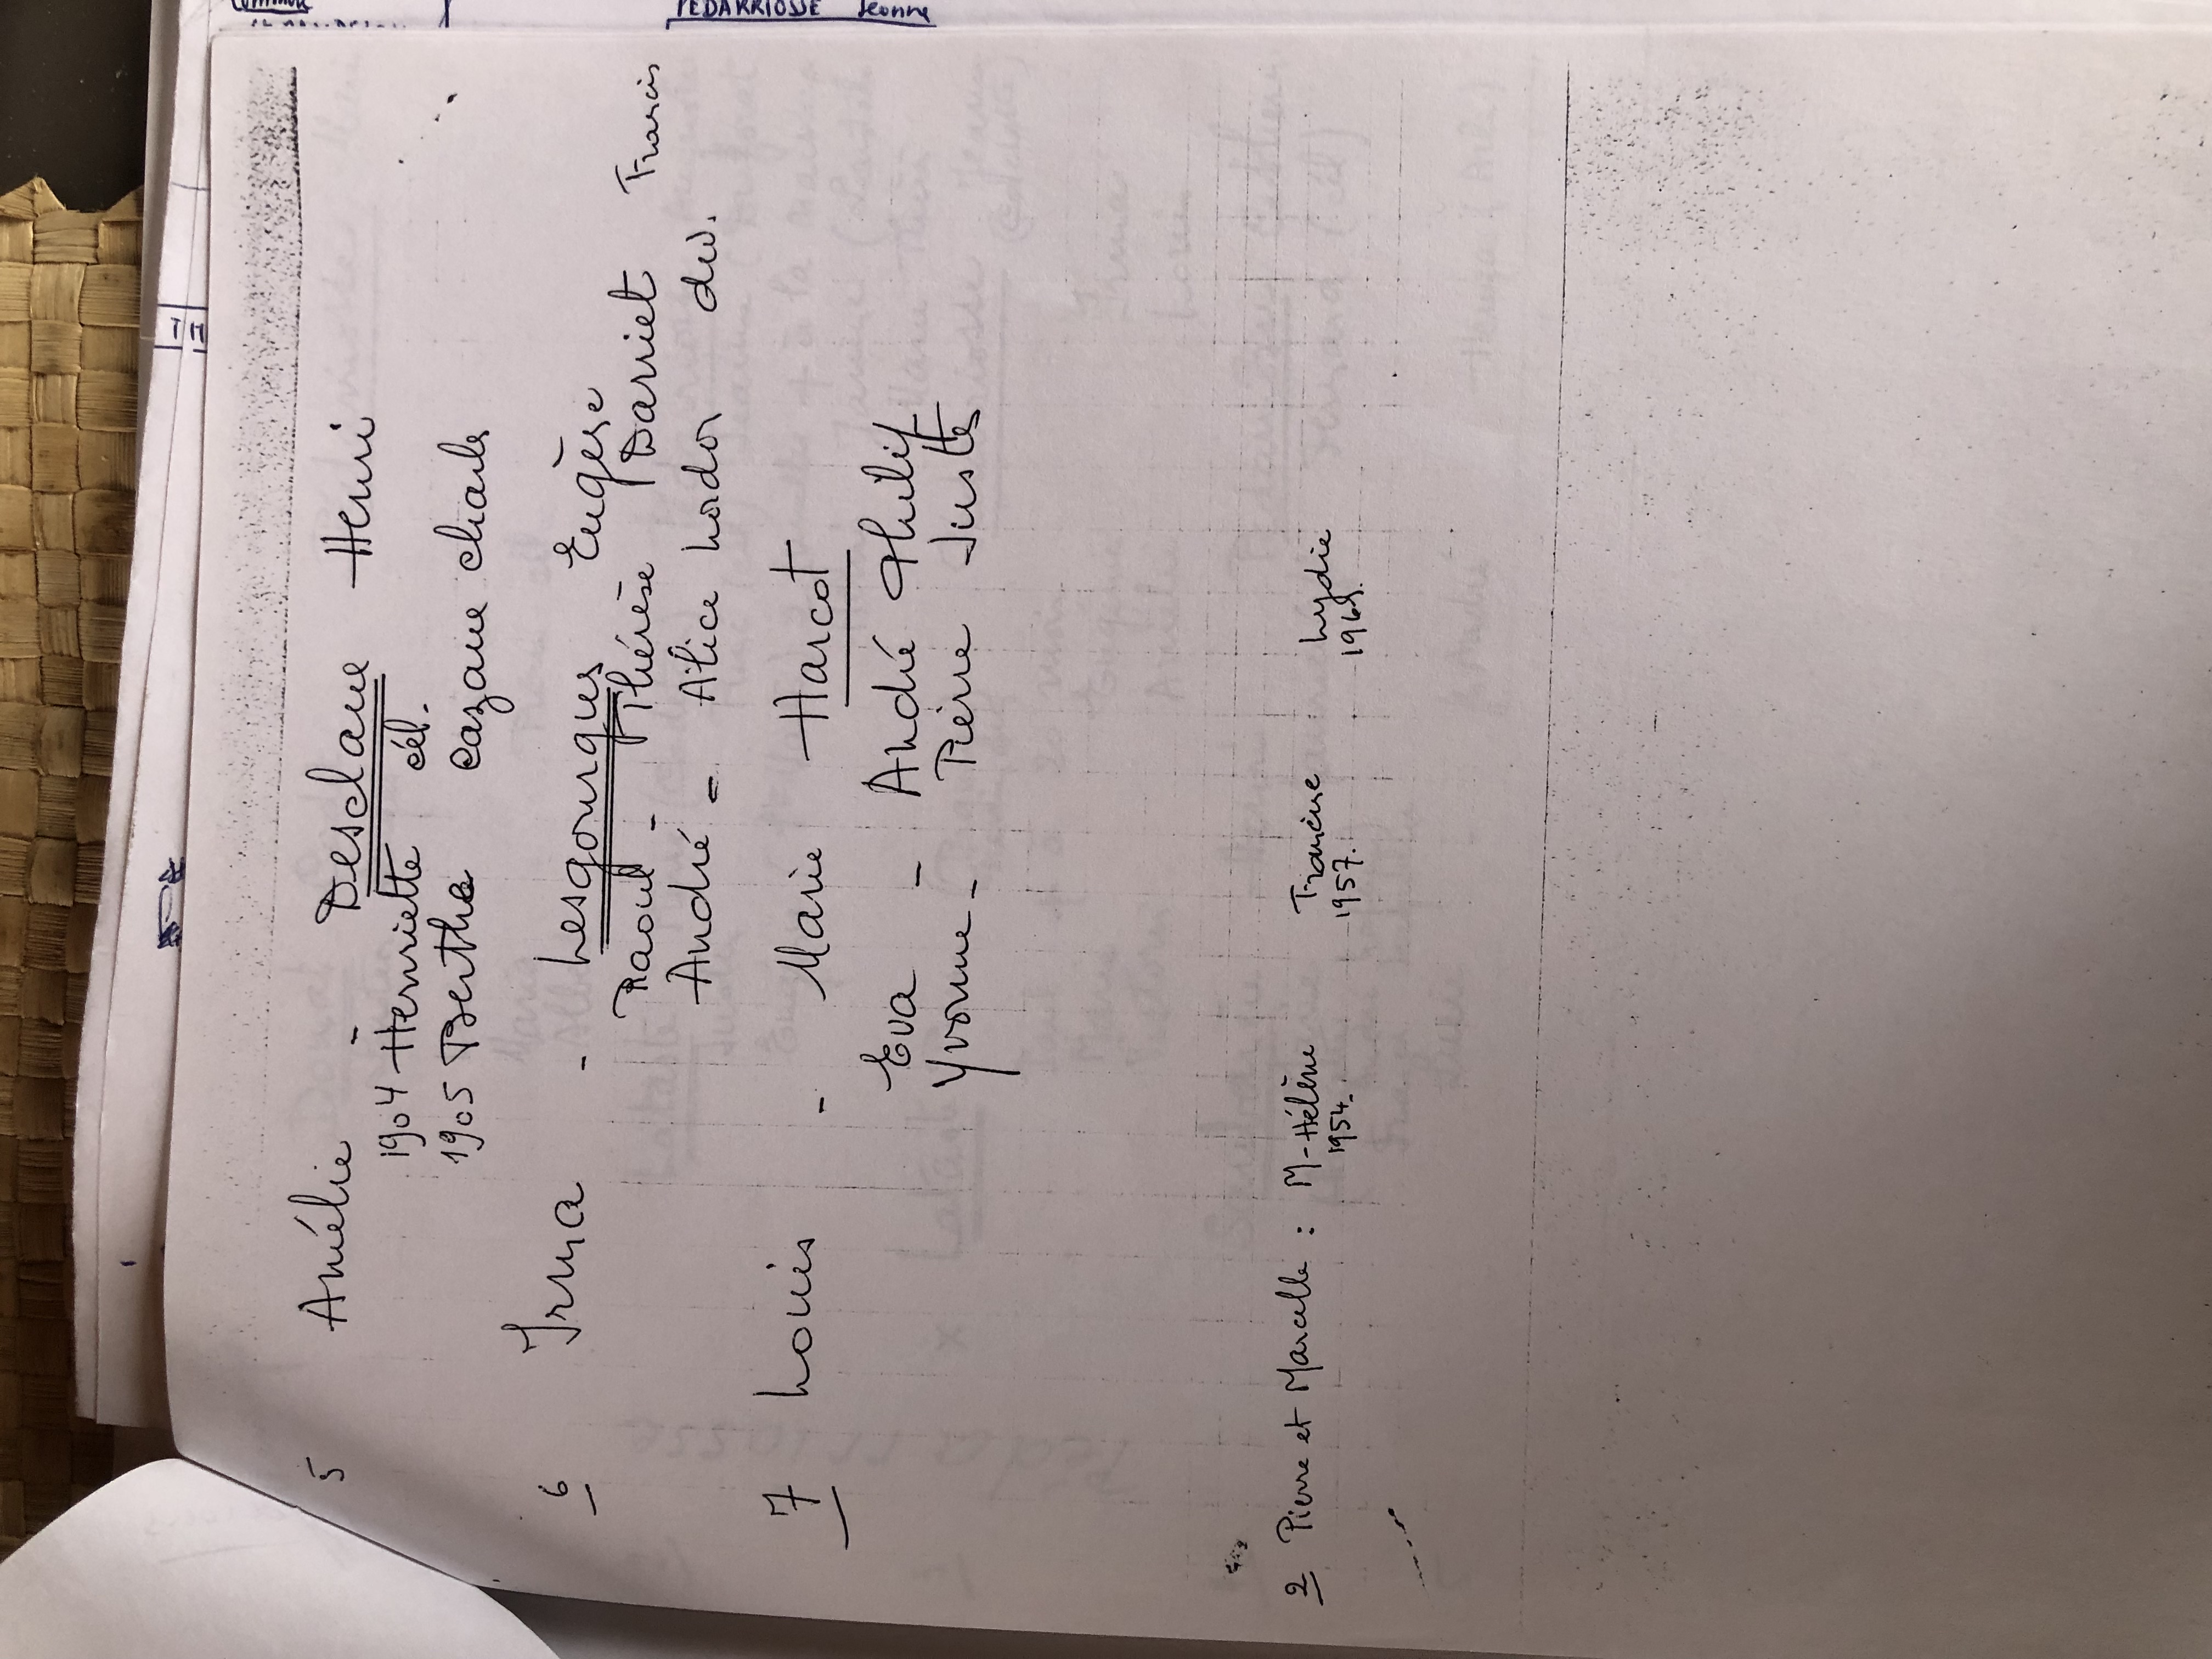 PEDARRIOSSE Jeanne
5 Amélie - Desclaux Henri
1904 Henriette cél.
1905 Berthe Cazaux Charles
6 Irma - Lesgourgues Eugène
Raoul - Thérèse Darriet Francis
André = Alice Lordon div.
7 Louis - Marie Harcot
Eva - André Philip
Yvonne - Pierre Juste
2 Pierre et Marcelle : M-Hélène Francine Lydie
1954. 1957.